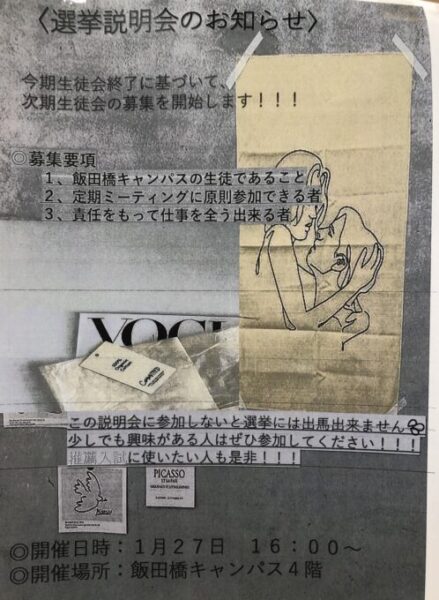 〈選挙説明会のお知らせ〉
今期生徒会終了に基づいて、
次期生徒会の募集を開始します!!!
◎募集要項
1、飯田橋キャンパスの生徒であること
2、定期ミーティングに原則参加できる者
3、責任をもって仕事を全う出来る者
VOGU
この説明会に参加しないと選挙には出馬出来ません
少しでも興味がある人はぜひ参加してください!!!
推薦入試に使いたい人も是非!!!
PICASSO
◎開催日時:1月27日 16:00～
◎開催場所:飯田橋キャンパス4階